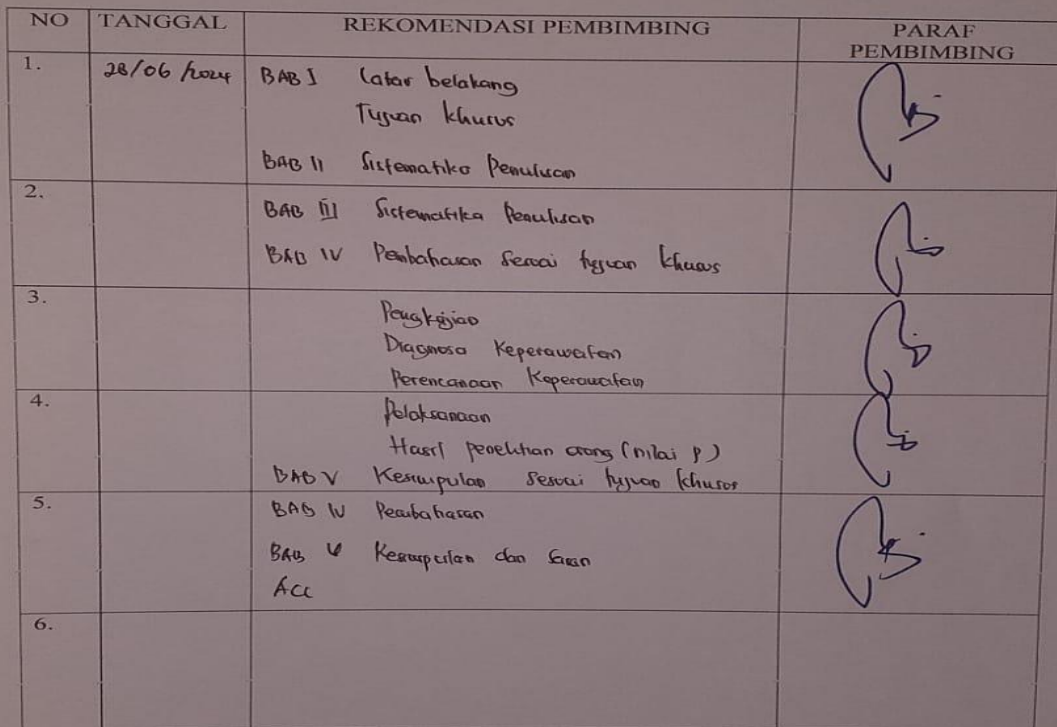 NO TANGGAL REKOMENDASI PEMBIMBING PARAF PEMBIMBING
1. 28/06/2024 BAB I Latar belakang
Tujuan khusus
BAB II Sistematika Penulisan
2. BAB III Sistematika Penulisan
BAB IV Pembahasan sesuai tujuan khusus
3. Pengkajian
Diagnosa Keperawatan
Perencanaan Keperawatan
4. Pelaksanaan
Hasil penelitian orang (nilai p)
BAB V Kesimpulan sesuai tujuan khusus
5. BAB IV Pembahasan
BAB V Kesimpulan dan Saran
Acc
6.